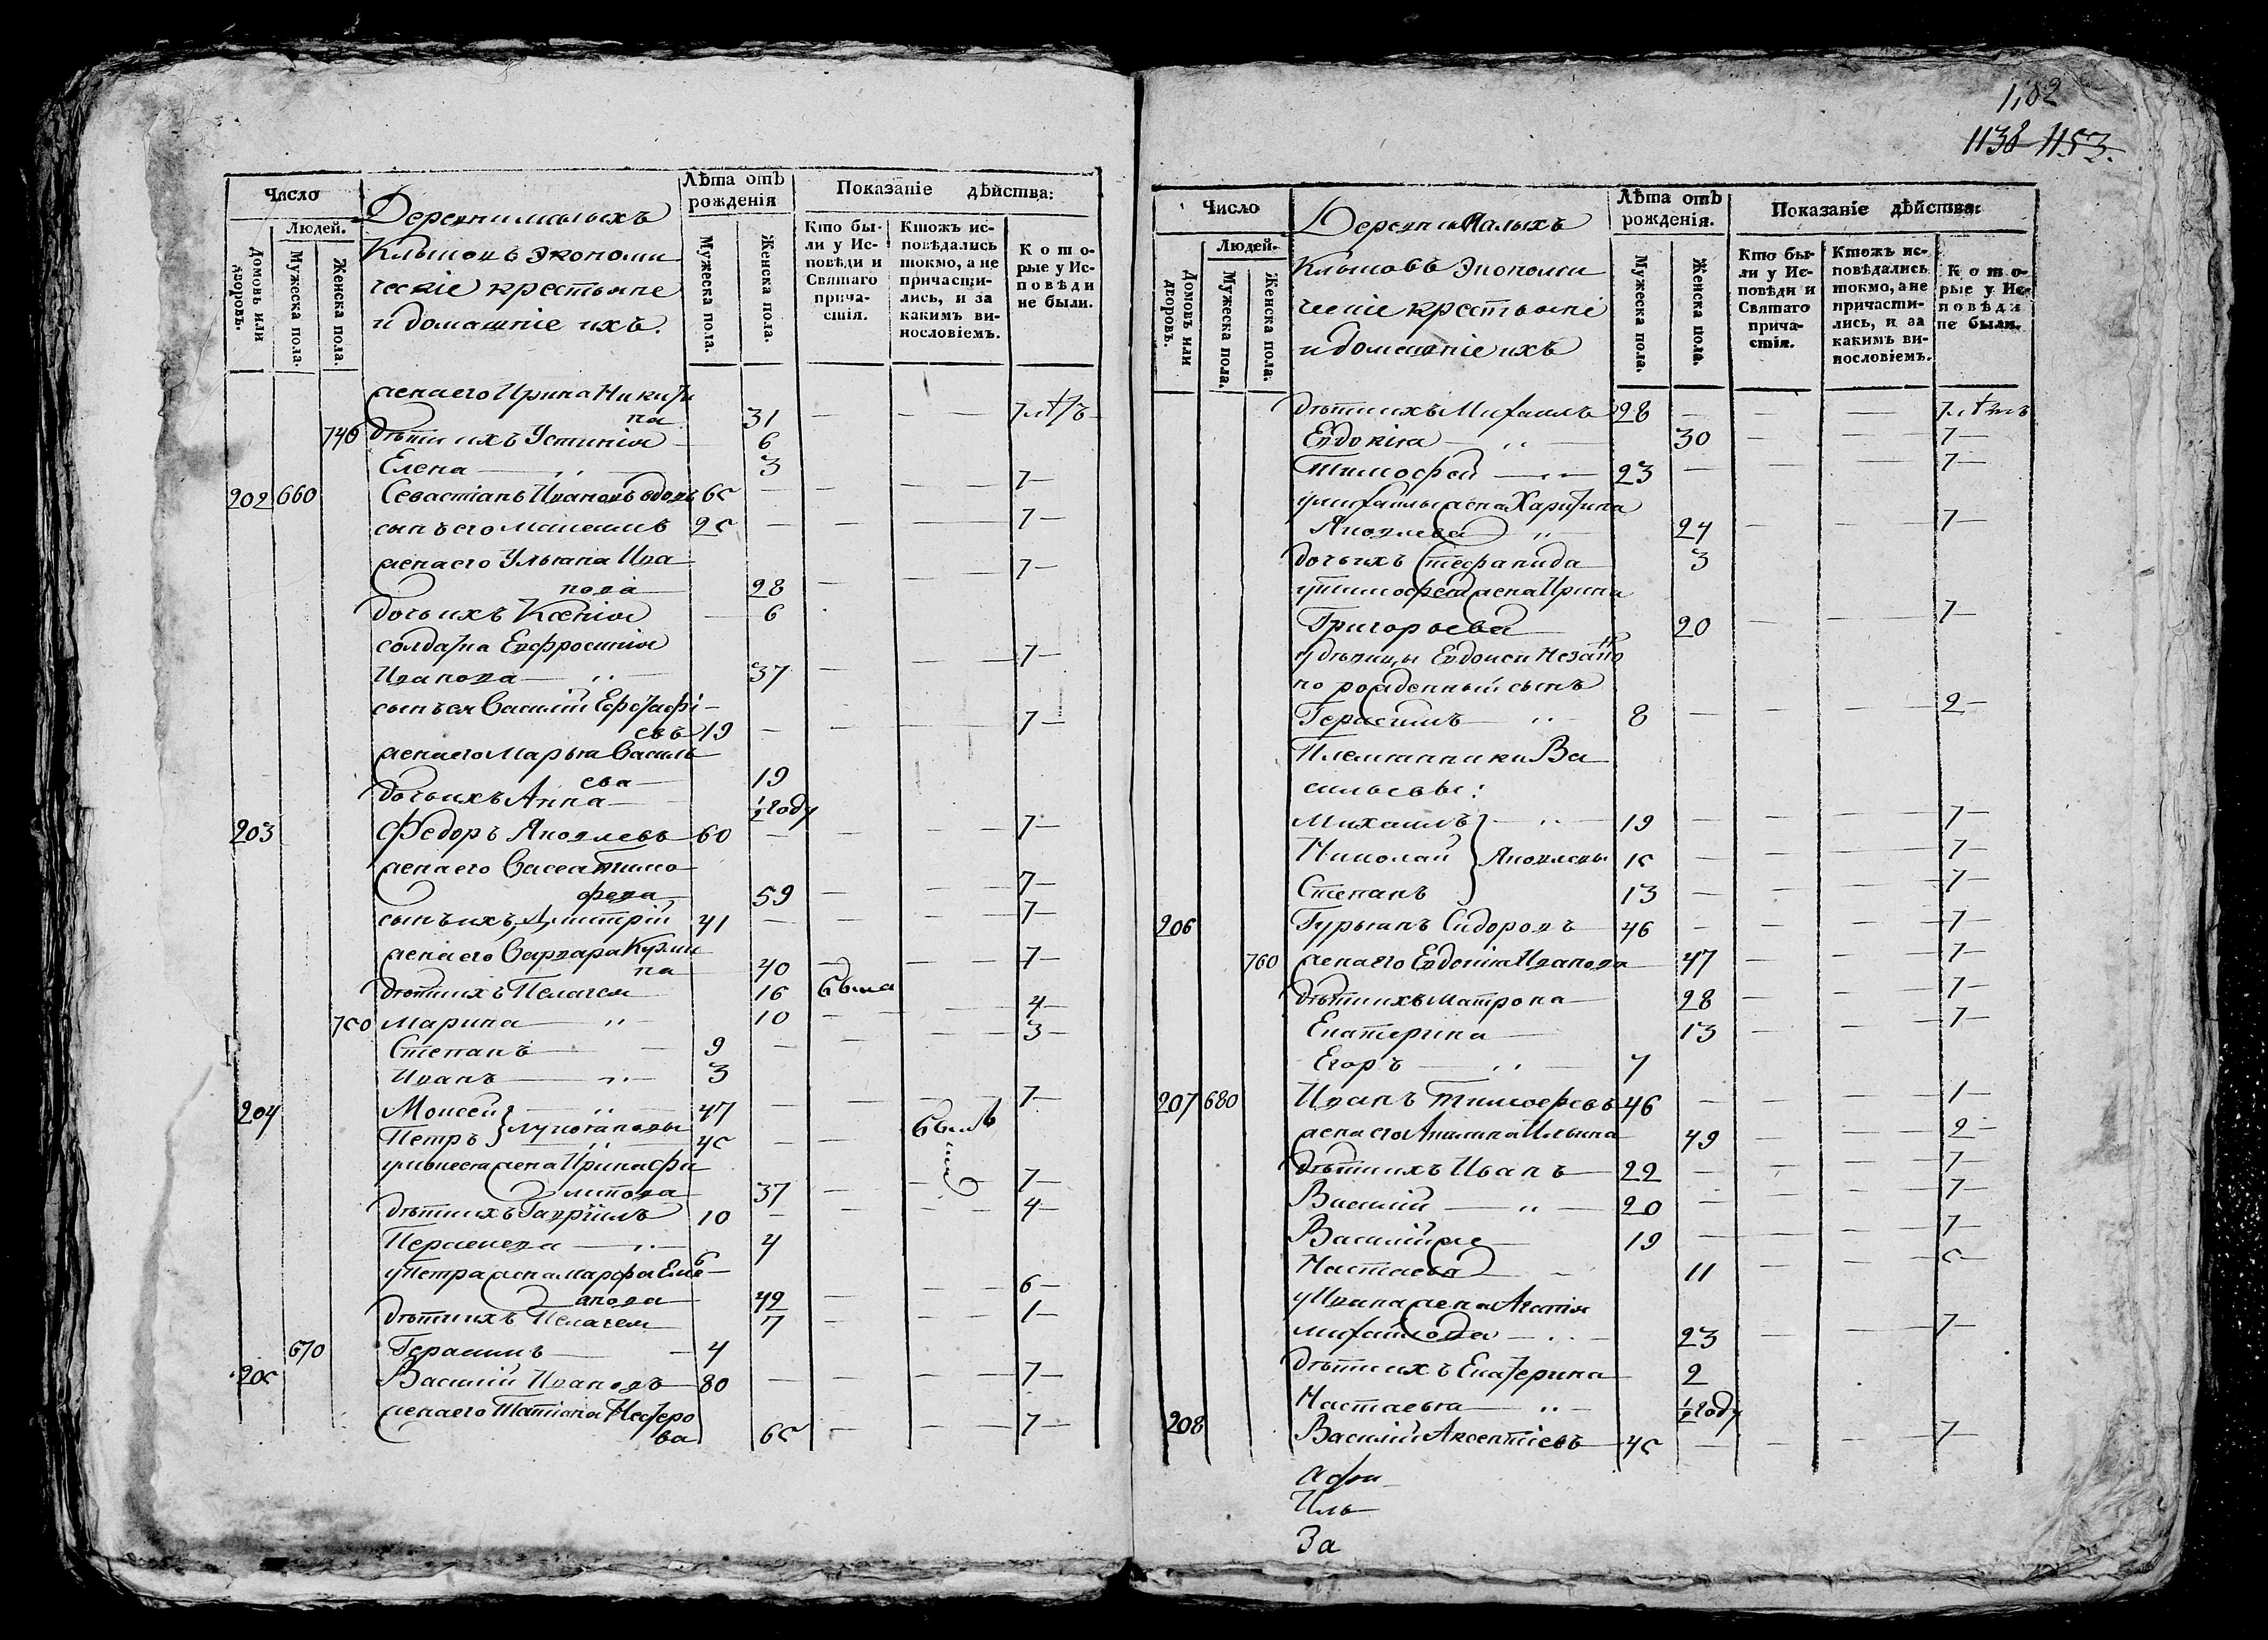 1,02
1138 1153.
Число
Людей.
Домовъ или дворовъ.
Мужеска пола.
Женска пола.
Деревни малыхъ
Клыковъ экономи
ческіе крестьяне
и домашніе ихъ.
Лѣта отъ рожденія
Мужеска пола.
Женска пола.
Показаніе дѣйства:
Кто бы-
ли у Ис-
повѣди и
Святаго
прича-
стія.
Ктожъ ис-
повѣдались
токмо, а не
причасти-
лись, и за
какимъ ви-
нословіемъ.
К о т о-
рые у Ис-
п о в ѣ д и
не были.
жена его Ирина Никити
на 31 — — — 7 лѣтъ
740 дѣти ихъ Устинія — 6
Елена — 3
202 660 Севастіанъ Ивановъ вдовъ 65 — — — 7 —
сынъ его 25 — — — 7 —
жена его Ульяна Ива
нова 28 — — 7 —
дочь ихъ Ксенія — 6
солдатка Евфросинія
Иванова — 37 — — — 7 —
сынъ ея Василій
евъ 19 — — — 7 —
жена его Марья Василь
ева — 19
дочь ихъ Анна — ½ году
203 Федоръ Яковлевъ 60 — — — 7 —
жена его Васса Тимо
феева 59 — — 7 —
сынъ ихъ Дмитрій 41 — — — 7 —
жена его Варвара Кузми
на 40 — — 7 —
дѣти ихъ Пелагея 16 была
750 Марина — 10 — — — 4 —
Степанъ — 9 — — — 3 —
Иванъ — 3
204 Моисей } — 47 — — — 7 —
Петръ } Лукояновы 45 — — былъ
жена Ирина Фи
липова 37 — — 7 —
дѣти ихъ Гавріилъ 10 — — — 4 —
— 4
у Петра жена Марфа Емель
анова 42 — — 6 —
дѣти ихъ Пелагея 7 — — 1 —
670 Герасимъ — 4
205 Василій Ивановъ 80 — — — 7 —
жена его Татіана Нестеро
ва 65 — — 7 —
Число
Людей.
Домовъ или дворовъ.
Мужеска пола.
Женска пола.
Деревни Малыхъ
Клыковъ экономи
ческіе крестьяне
и домашніе ихъ
Лѣта отъ рожденія.
Мужеска пола.
Женска пола.
Показаніе дѣйства:
Кто бы-
ли у Ис-
повѣди и
Святаго
прича-
стія.
Ктожъ ис-
повѣдались
токмо, а не
причасти-
лись, и за
какимъ ви-
нословіемъ.
К о т о-
рые у Ис-
п о в ѣ д и
не были.
дѣти ихъ Михаилъ 28 — — 7 лѣтъ
Евдокія — 30 — — 7 —
Тимофей — 23 — — 7 —
у Михайлы жена Харитина
Яковлева 24 — — 7 —
дочь ихъ Стефанида 3
у Тимофея жена Ирина
Григорьева 20 — — 7 —
у дѣвицы Евдокеи незакон
но рожденный сынъ
Герасимъ — 8 — — — 2 —
Племянники Ва
сильевы:
Михаилъ } — 19 — — — 7 —
Николай } Яковлевы 15 — — — 7 —
Степанъ } 13 — — — 7 —
206 Гурьянъ Сидоровъ — 46 — — — 7 —
760 жена его Евдокія Иванова 47 — — 7 —
дѣти ихъ Матрона 28 — — 7 —
Екатерина 13 — — 7 —
Егоръ — 7
207 680 Иванъ Тимофеевъ 46 — — — 1 —
жена его Акилина Ильина 49 — — 2 —
дѣти ихъ Иванъ 22 — — — 7 —
Василій — 20 — — — 7 —
Василійже 19 — — — 7 —
Настасья 11 — — 5 —
у Ивана жена Агафія
Михайлова — 23 — — 7 —
дѣти ихъ Екатерина 2
Настасья — ½ году
208 Василій Аксентіевъ — 45 — — — 7 —
За